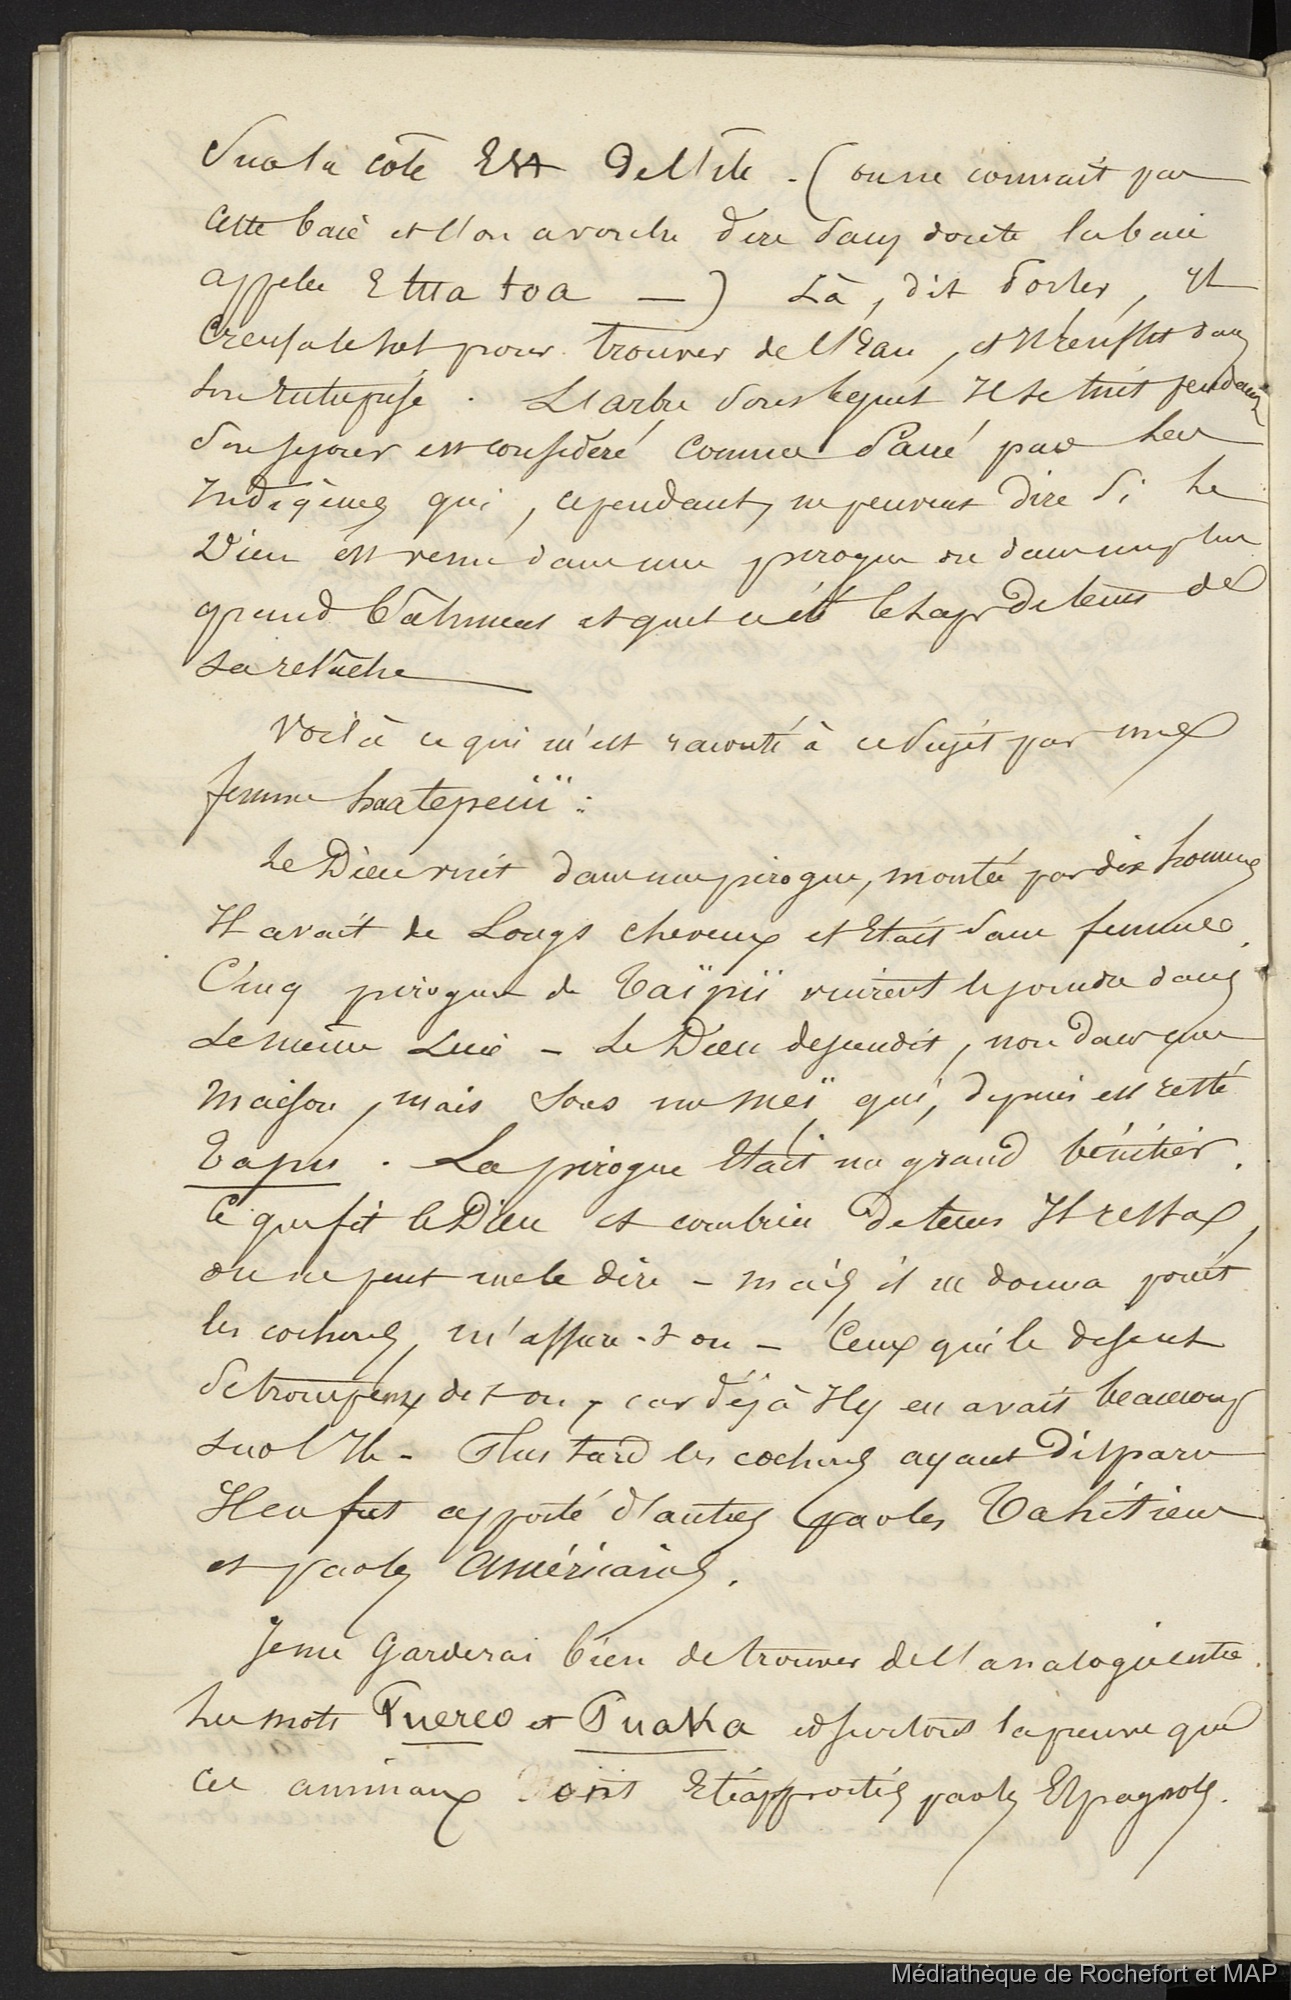 Sur la côte Est de l'île – (on ne connait pas
cette baie et l'on a voulu dire sans doute la baie
appelée Etua toa —) Là, dit Porter, il
creusa le sol pour trouver de l'eau, et il réussit dans
son entreprise. L'arbre sous lequel Il se tint pendant
son séjour est considéré comme sacré par les
Indigènes qui, cependant, ne peuvent dire si le
Dieu est venu dans une pirogue ou dans un plus
grand bâtiment et quel a été le laps de tems de
sa relâche —
Voilà ce qui m'est raconté à ce sujet par une
femme haatepeiii :
Le Dieu vint dans une pirogue, montée par dix hommes
Il avait de longs cheveux et était sans femmes.
Cinq pirogues de Taïpii vinrent le joindre dans
le même lieu – Le Dieu descendit, non dans une
maison, mais sous un meï qui, depuis est resté
Tapu. La pirogue était un grand bénitier.
Ce que fit le Dieu et combien de tems Il resta,
on ne peut me le dire – mais il ne donna point
les cochons, m'assure-t-on – Ceux qui le disent
se trompent, dit-on, car déjà Il y en avait beaucoup
sur l'île – Plus tard les cochons ayant disparu
Il en fut apporté d'autres par les Tahitiens
et par les Américains.
Je me garderai bien de trouver de l'analogie entre
les mots Puerco et Puaka et surtout la preuve que
ces animaux aient été apportés par les Espagnols.
Médiathèque de Rochefort et MAP